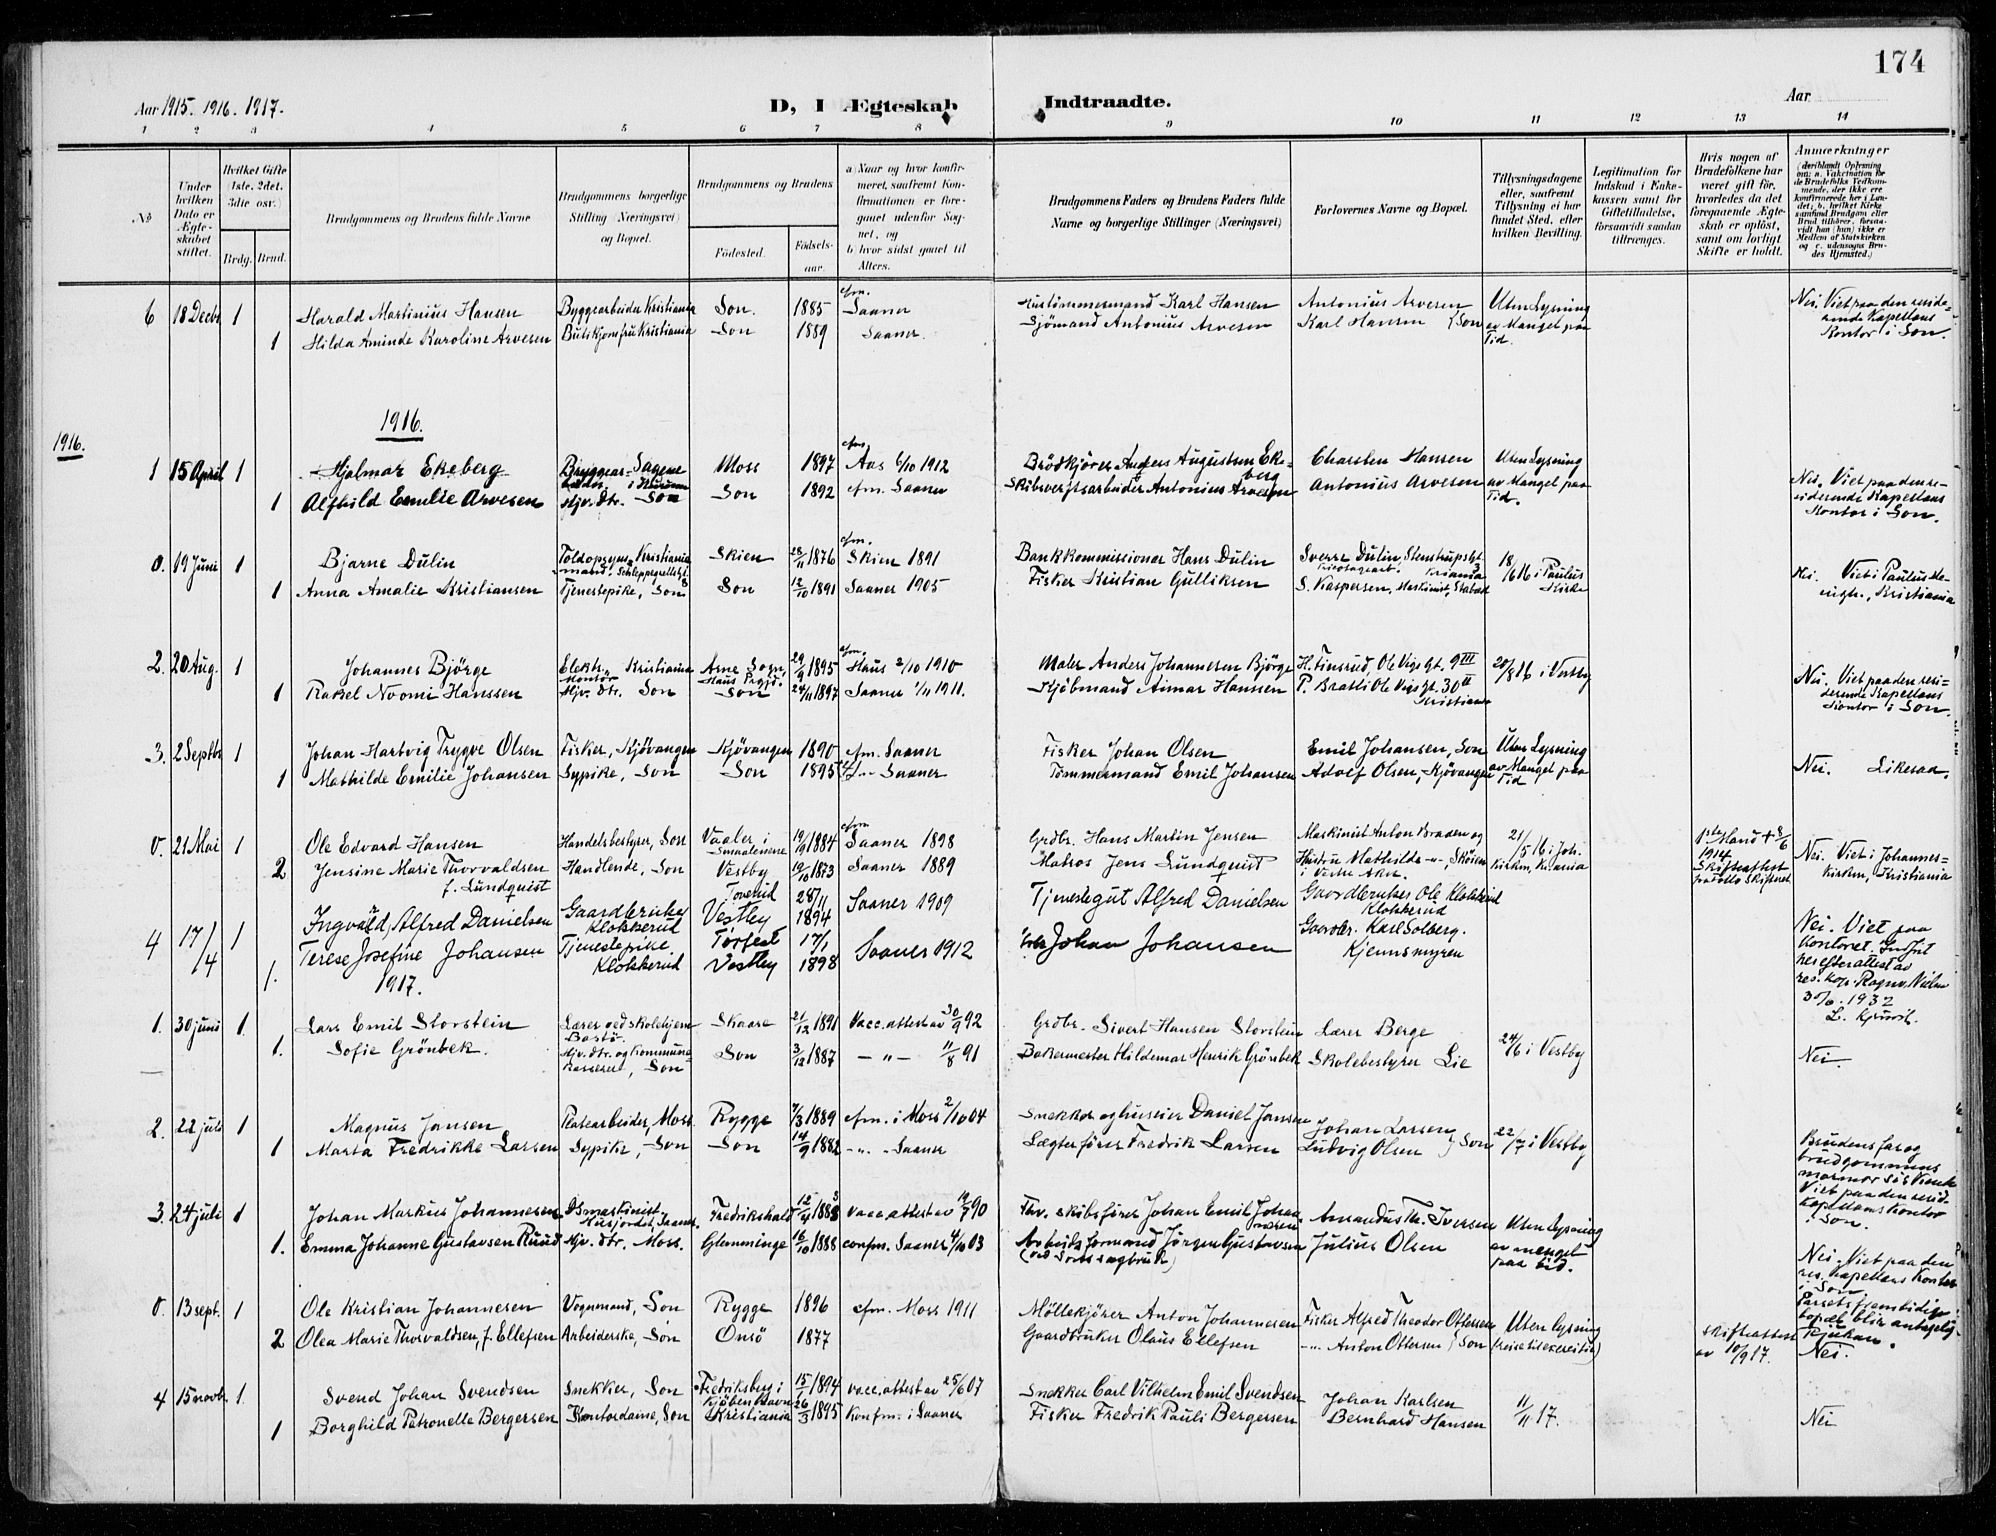 174
Aar 1915. 1916. 1917.
D, I Ægteskab Indtraadte.
Aar
1 2 3 4 5 6 7 8 9 10 11 12 13 14
No
Under hvilken Dato er Ægteskabet stiftet.
Hvilket Gifte 1ste, 2det, 3die osv.)
Brdg. Brud.
Brudgommens og Brudens fulde Navne
Brudgommens borgerlige Stilling (Næringsvei) og Bopæl.
Brudgommens og Brudens
Fødested.
Fødselsaar.
a) Naar og hvor konfirmeret, saafremt Konfirmationen er foregaaet udenfor Sognet, og
b) hvor sidst gaaet til Alters.
Brudgommens Faders og Brudens Faders fulde Navne og borgerlige Stillinger (Næringsvei)
Forlovernes Navne og Bopæl.
Tillysningsdagene eller, saafremt Tillysning ei har fundet Sted, efter hvilken Bevilling.
Legitimation for Indskud i Enkekassen samt for Giftetilladelse, forsaavidt saadan tiltrænges.
Hvis nogen af Brudefolkene har været gift før, hvorledes da det foregaaende Ægteskab er opløst, samt om lovligt Skifte er holdt.
Anmærkninger
6 18 Decbr 1 Harald Martinius Hansen Byggearbeider Kristiania Son. 1885 cfm. Saaner Karl Hansen Antonius Arvesen Uten Lysning Nei. Viet paa den reside-
1 Hilda Aminde Karoline Arvesen Butikjomfru Kristiania Son 1889 Saaner. Sjömand Antonius Arvesen Karl Hansen } Son av Mangel paa Tid. rende Kapellans Kontor i Son.
1916.
1916.
1 15 April 1 Hjalmar Ekeberg Moss 1897 cfm. Aas 6/10 1912 Brödkjörer Anders Augustsen Ekeberg Charsten Hansen Uten Lysning Nei. Viet paa den re-
1 Alfhild Emilie Arvesen Hjv. dtr. Son Son 1892 cfm. Saaner Skibsverftsarbeider Antonius Arvesen Antonius Arvesen av Mangel paa Tid. siderende Kapellans Kontor i Son.
0. 19 Juni 1 Bjarne Dulin Toldopsyns- Kristiania mand, Schleppegrellsgt. Skien 28/11 1876 cfm. Skien 1891 Bankkommissionær Hans Dulin Sverre Dulin, Stenstrupsgt. 3 Kriania 18/6 16 i Paulus Kirke Nei. Viet i Paulus Me-
1 Anna Amalie Kristiansen Tjenestepike, Son Son 12/10 1891 Saaner 1905 Fisker Kristian Gulliksen S. Kaspersen, Maskinist, Stabæk nigh., Kristiania
2. 20 Aug. 1 Johannes Björge Elektr. Kristiania Montör Arne Sogn, Haus Prgjd. 29/9 1895 cfm. Haus 2/10 1910 Maler Anders Johannesen Björge H. Finsrud, Ole Vigs gt. 9 III 20/8 16 i Vestby Nei. Viet paa den resi-
1 Rakel Noomi Hanssen Hjv. dtr. Son Son 24/11 1897 Saaner 1/11 1911. Kjöbmand Aimar Hanssen P. Bratli Ole Vigs gt. 30 II Kristiania derende Kapellans Kontor i Son.
3. 2 Septbr 1 Johan Hartvig Trygve Olsen Fisker, Kjövangen Kjövangen 1890 cfm. Saaner Fisker Johan Olsen Emil Johansen, Son Uten Lysning
1 Mathilde Emilie Johansen Sypike, Son Son 1895 -"- Saaner Tömmermand Emil Johansen Adolf Olsen, Kjövangen av Mangel paa Tid Nei. Likesaa.
0. 21 Mai 1 Ole Edvard Hansen Handelsbestyrer, Son Vaaler i Smaalenene 19/9 1884 cfm. Saaner 1898 Grdbr. Hans Martin Jensen Maskinist Anton Braden og 21/5 16 i Joh. Kirken, Kr.ania 1ste Mand + 8/6 1914 Skifteattest Nei. Viet i Johannes-
2 Jensine Marie Thorvaldsen f. Lundquist Handlende, Son Vestby 19/10 1873 Saaner 1889 Matros Jens Lundquist Hustru Mathilde -"- Skøien i Vestre Aker kirken, Kristiania
4 17/4 1 Ingvald Alfred Danielsen Gaardbruker Klokkerud Toverud Vestby 28/11 1894 Saaner 1909 Tjenestegut Alfred Danielsen Gaardbruker Ole Klokkerud Klokkerud Nei. Viet paa Kontoret. Indfört her efter attest av res. kap. Ragnv. Nielsen 30/6. 1932
1. Terese Josefine Johansen Tjenestepike Klokkerud Vestby 17/1 1898 Saaner 1912 Johan Johansen Gaardbr. Karl Solberg. Kjennsmyren
1917.
1. 30 juni 1. Lars Emil Storstein Lærer ved skolehjem Bastö. Skaare 21/12 1891 vacc. attest av 30/9 92 Grdbr. Sivert Hansen Storstein Lærer Berge 24/6 i Vestby
1. Sofie Grönbek. Hjv. dtr. og kommunekasserer, Son Son 3/12 1887 -"- 11/8 91 Bakermester Hildemar Henrik Grönbek Skolebestyrer Lie Nei.
2. 22 juli 1 Magnus Jansen Platearbeider, Moss Rygge 7/3 1889 cfm. i Moss 2/10 04 Snekker og huseier Daniel Jansen Johan Larsen 22/7 i Vestby
1 Marta Fredrikke Larsen Sypike, Son Son 14/9 1882 -"- Saaner Lægterfører Fredrik Larsen Ludvig Olsen } Son Brudens far og brudgommens
3. 24 juli 1 Johan Markus Johannesen Fredrikshald 12/4 1883 vacc. attest av 19/7 90 Fhv. skibsfører Johan Emil Johannesen Amandus Th. Iversen Uten lysning Viet paa den resid. kapellans kontor i Son.
1. Emma Johanne Gustavsen Ruud Hjv. dtr. Moss. Glemminge 16/10 1888 confm. Saaner 4/10 03 Arbeidsformand Jörgen Gustavsen (ved Sons sagbruk) Julius Olsen av mangel paa tid.
0. 13 sept. 1 Ole Kristian Johannesen Vognmand, Son Rygge 1896 cfm. Moss 1911 Möllekjörer Anton Johannesen Fisker Alfred Theodor Ottersen Uten lysning Nei. Viet paa den res. kapellans kontor i Son. Parrets fremtidige bopæl blir antagelig Rjukan.
2 Olea Marie Thorvaldsen, f. Ellefsen Arbeiderske, Son Onsö 1877 Gaardbruker Olaus Ellefsen -"- Anton Ottersen } Son Skifteattest av 10/9 17. Nei.
4 15 novbr. 1. Svend Johan Svendsen Snekker, Son Fredriksberg i Kjöbenhavn 15/1 1894 vacc. attest av 25/6 07 Snekker Carl Vilhelm Emil Svendsen Johan Karlsen 11/11 17.
1 Borghild Petronelle Bergersen Kontordame, Son Kristiania 26/3 1895 Konfm. i Saaner Fisker Fredrik Pauli Bergersen Bernhard Hansen Nei